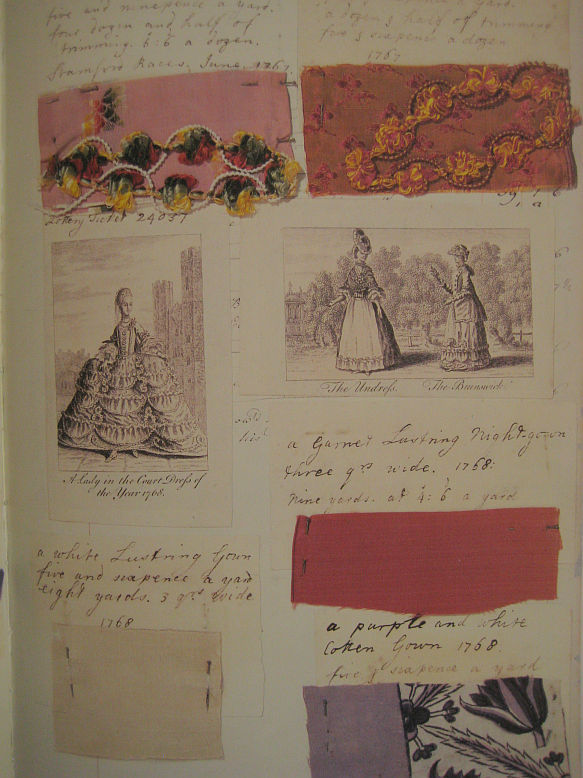 five and ninepence a yard.
four dozen and half of
trimming. 6:6 a dozen.
Stamford Races, June, 1767.
a dozen & half of trimming
five & sixpence a dozen
1767
Lottery Ticket 24037
A Lady in the Court Dress of
the Year 1768.
The Undress.
The Brunswick.
a Garnet Lustring Night-gown
three qrs wide. 1768:
Nine yards. at 4:6 a yard
a white Lustring Gown
five and sixpence a yard
eight yards. 3 qrs wide
1768
a purple and white
Cotten Gown 1768.
five & sixpence a yard